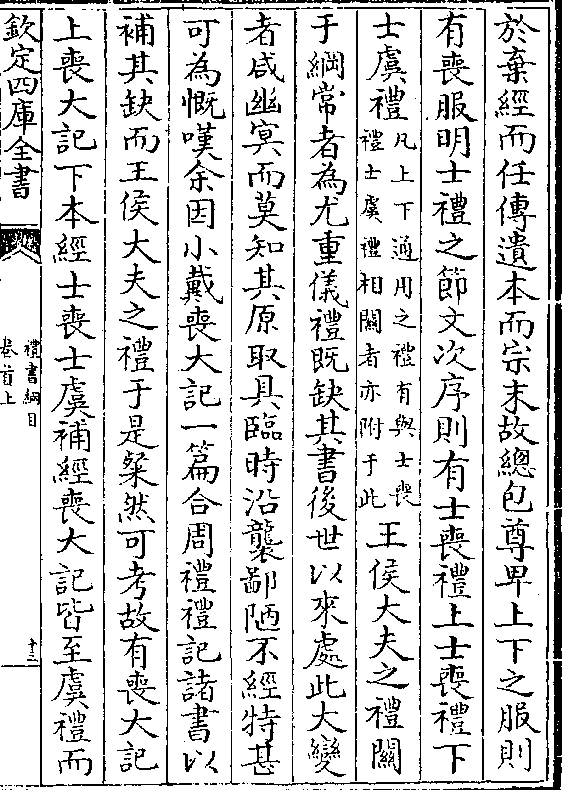 於棄經而任傳遺本而宗末故總包尊卑上下之服則
有喪服明士禮之節文次序則有士喪禮上士喪禮下
士虞禮凡上下通用之禮有與士喪
禮士虞禮相關者亦附于此王侯大夫之禮關
于綱常者為尤重儀禮既缺其書後世以來處此大變
者咸幽冥而莫知其原取具臨時沿襲鄙陋不經特甚
可為慨嘆余因小戴喪大記一篇合周禮禮記諸書以
補其缺而王侯大夫之禮于是粲然可考故有喪大記
上喪大記下本經士喪士虞補經喪大記皆至虞禮而
欽定四庫全書
禮書綱目
卷首上
十三